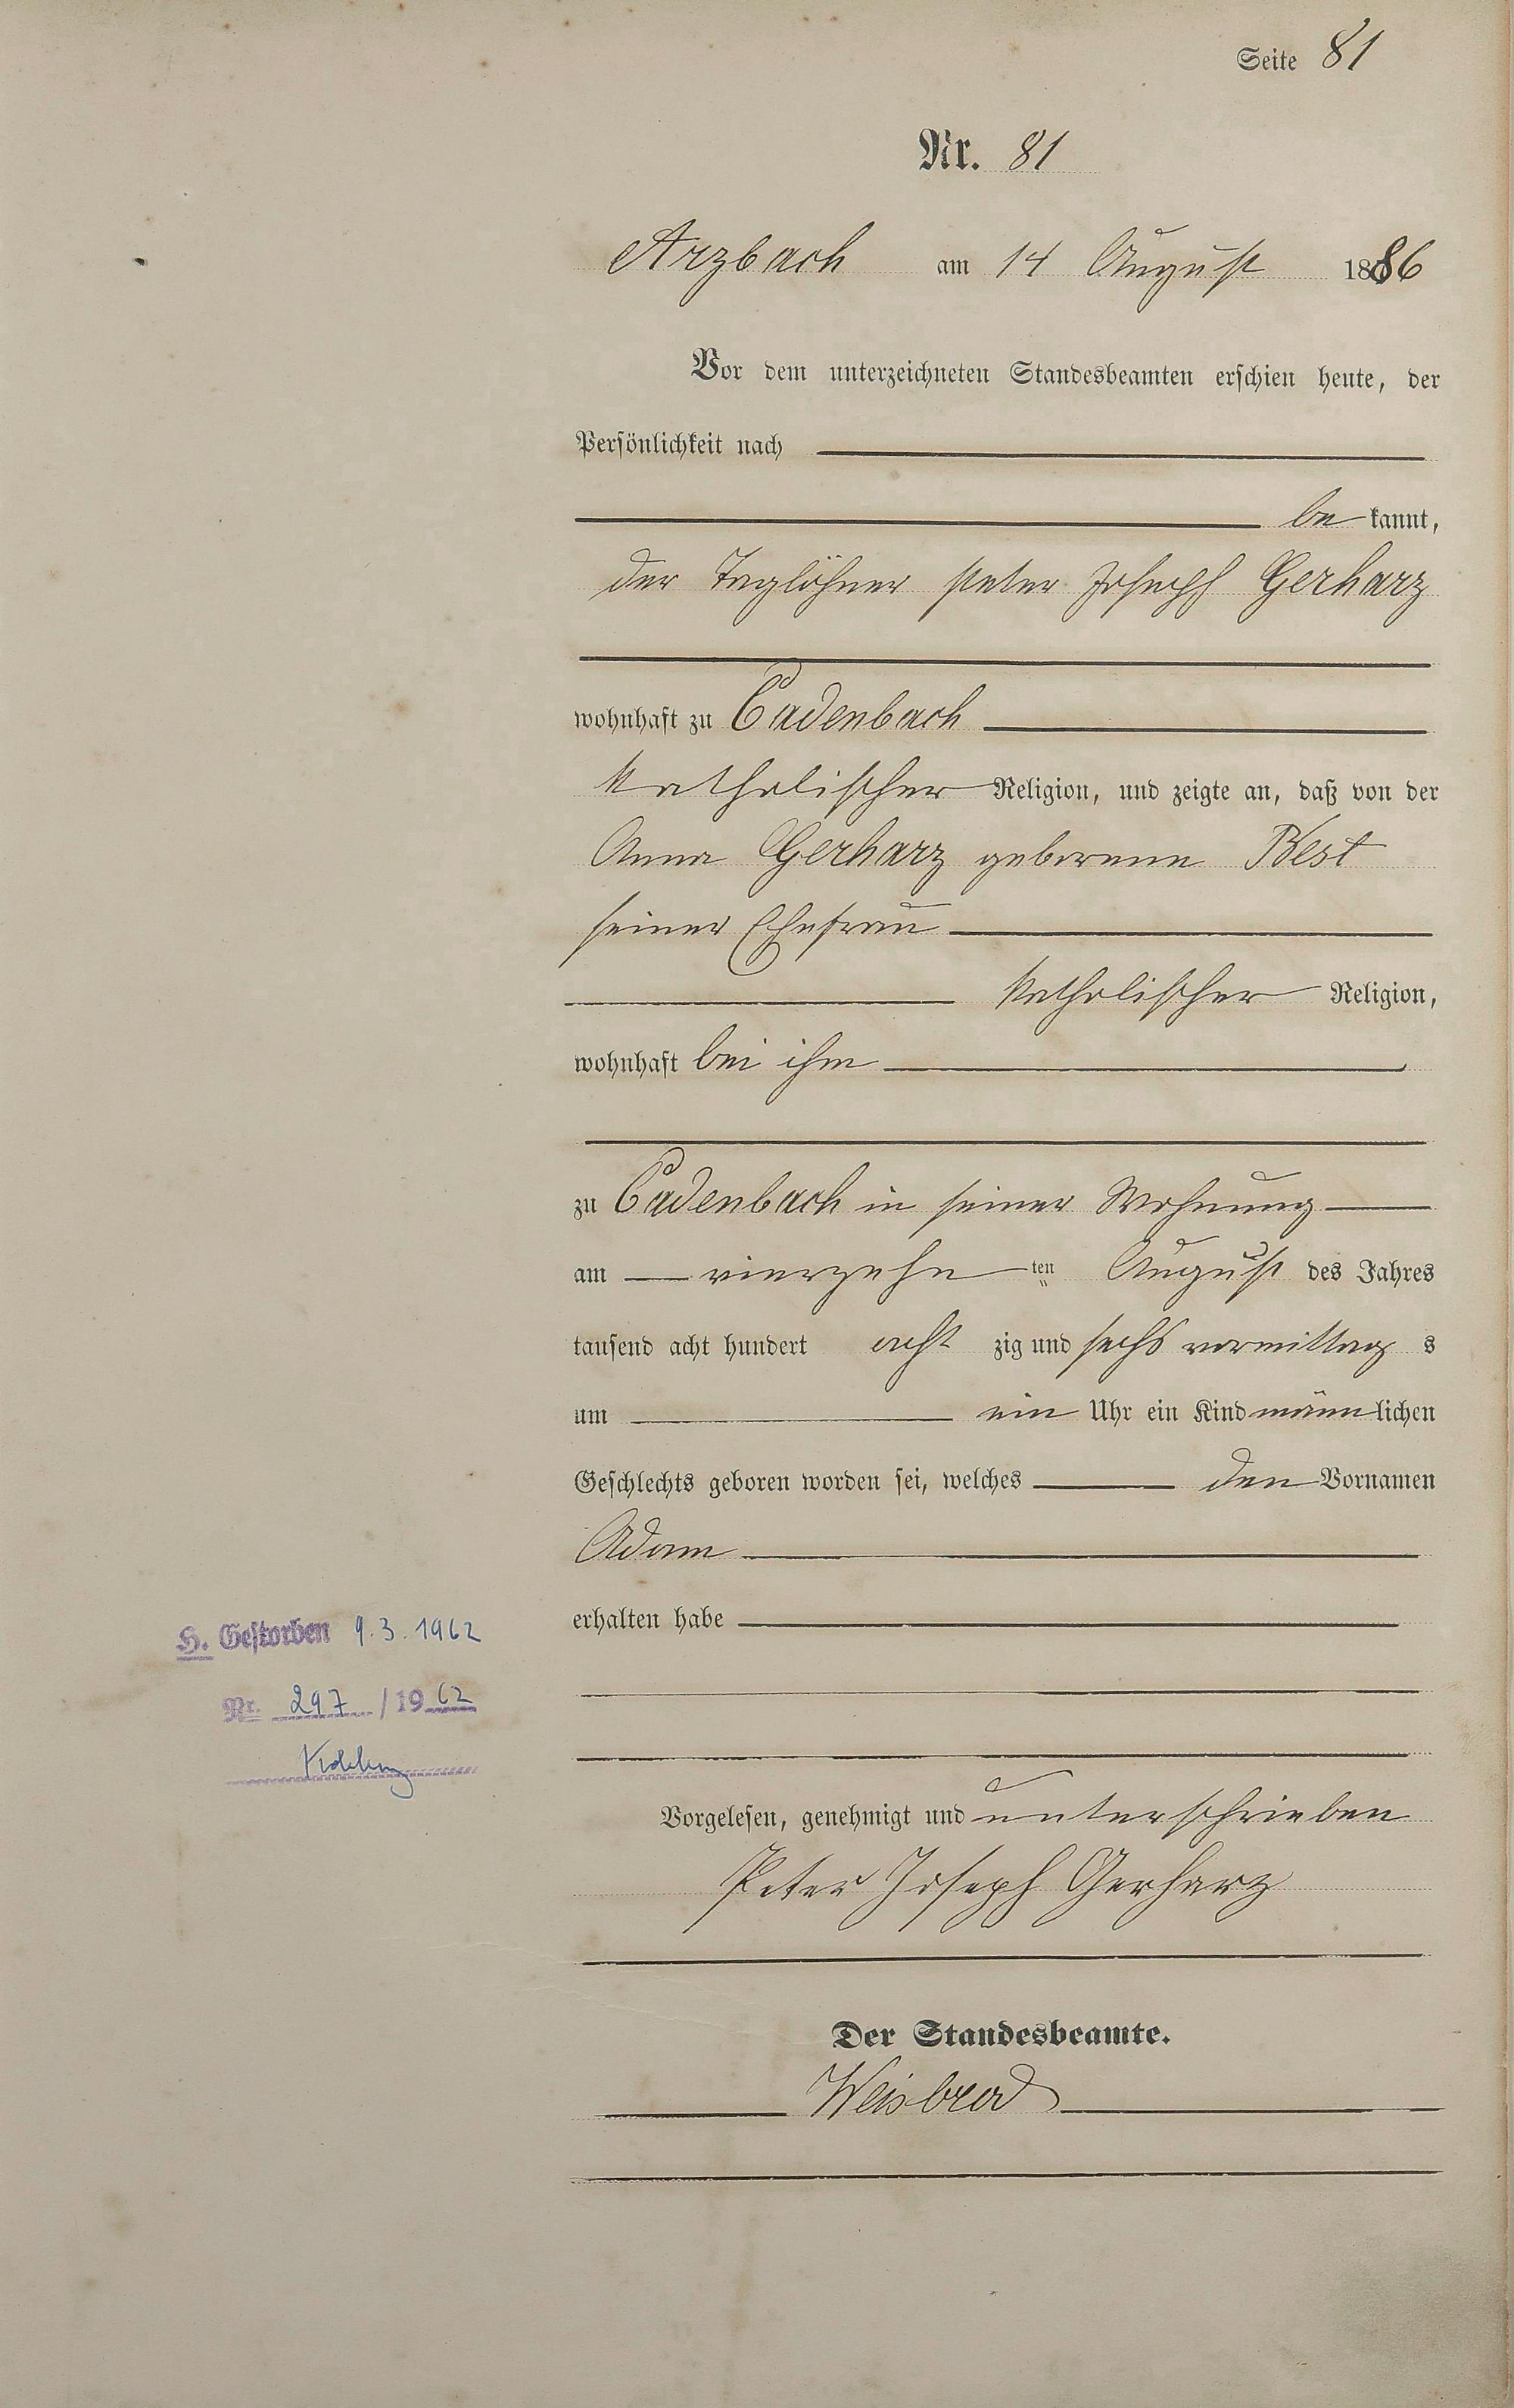 Seite 81
Nr. 81
Arzbach am 14 August 1886
Vor dem unterzeichneten Standesbeamten erschien heute, der
Persönlichkeit nach
be kannt,
der Taglöhner Peter Joseph Gerharz
wohnhaft zu Cadenbach
katholischer Religion, und zeigte an, daß von der
Anna Gerharz geborenen Best
seiner Ehefrau
katholischer Religion,
wohnhaft bei ihm
zu Cadenbach in seiner Wohnung
am vierzehn ten August des Jahres
tausend acht hundert acht zig und sechs vormittag s
um ein Uhr ein Kind männ lichen
Geschlechts geboren worden sei, welches den Vornamen
Adam
erhalten habe
H. Gestorben 9.3.1962
Nr. 297 / 1962
Vorgelesen, genehmigt und unterschrieben
Peter Joseph Gerharz
Der Standesbeamte.
Weisbrod